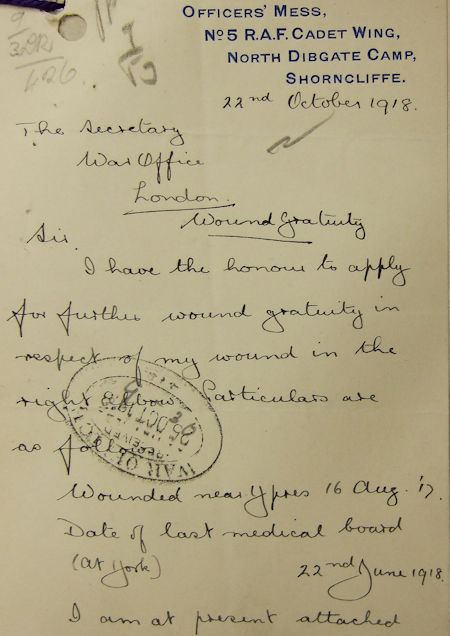 OFFICERS' MESS,
No 5 R.A.F. CADET WING,
NORTH DIBGATE CAMP,
SHORNCLIFFE.
22nd October 1918.
The Secretary
War Office
London.
Wound Gratuity
Sir.
I have the honour to apply
for further wound gratuity in
respect of my wound in the
right elbow. Particulars are
as follows
WAR OFFICE
RECEIVED
25 OCT 1918
Wounded near Ypres 16 Aug. '17.
Date of last medical board
(at York) 22nd June 1918.
I am at present attached